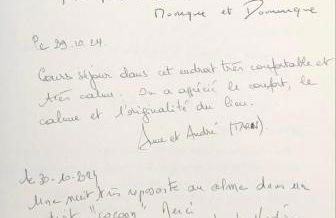 Monique et Dominique
Le 29.10.24.
Cours séjour dans cet endroit très confortable et
très calme. On a apprécié le confort, le
calme et l'originalité du lieu.
Anne et André (TARN)
Le 30-10-2024
Une nuit très reposante au calme dans un
"cocoon" Merci